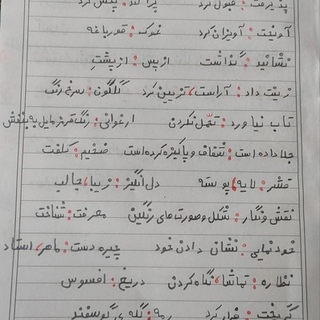 پذیرفت: قبول کرد پراکند: پخش کرد
آویخت: آویزان کرد غوک: قورباغه
نشانید: گذاشت از پس: از پشت
زینت داد: آراست، تزیین کرد گلگون: سرخ رنگ
تاب نیاورد: تحمل نکردن ارغوانی: رنگ قرمز مایل به بنفش
جلا داده است: شفاف و پاکیزه کرده است ضخیم: کلفت
قشر: لایه، پوسته دل انگیز: زیبا، جالب
نقش و نگار: شکل و صورت های رنگین معرفت: شناخت
خودنمایی: نشانی دادن خود چیره دست: ماهر، استاد
نظاره: تماشا، نگاه کردن دریغ: افسوس
گریخت: فرار کرد رمه: گله ی گوسفند